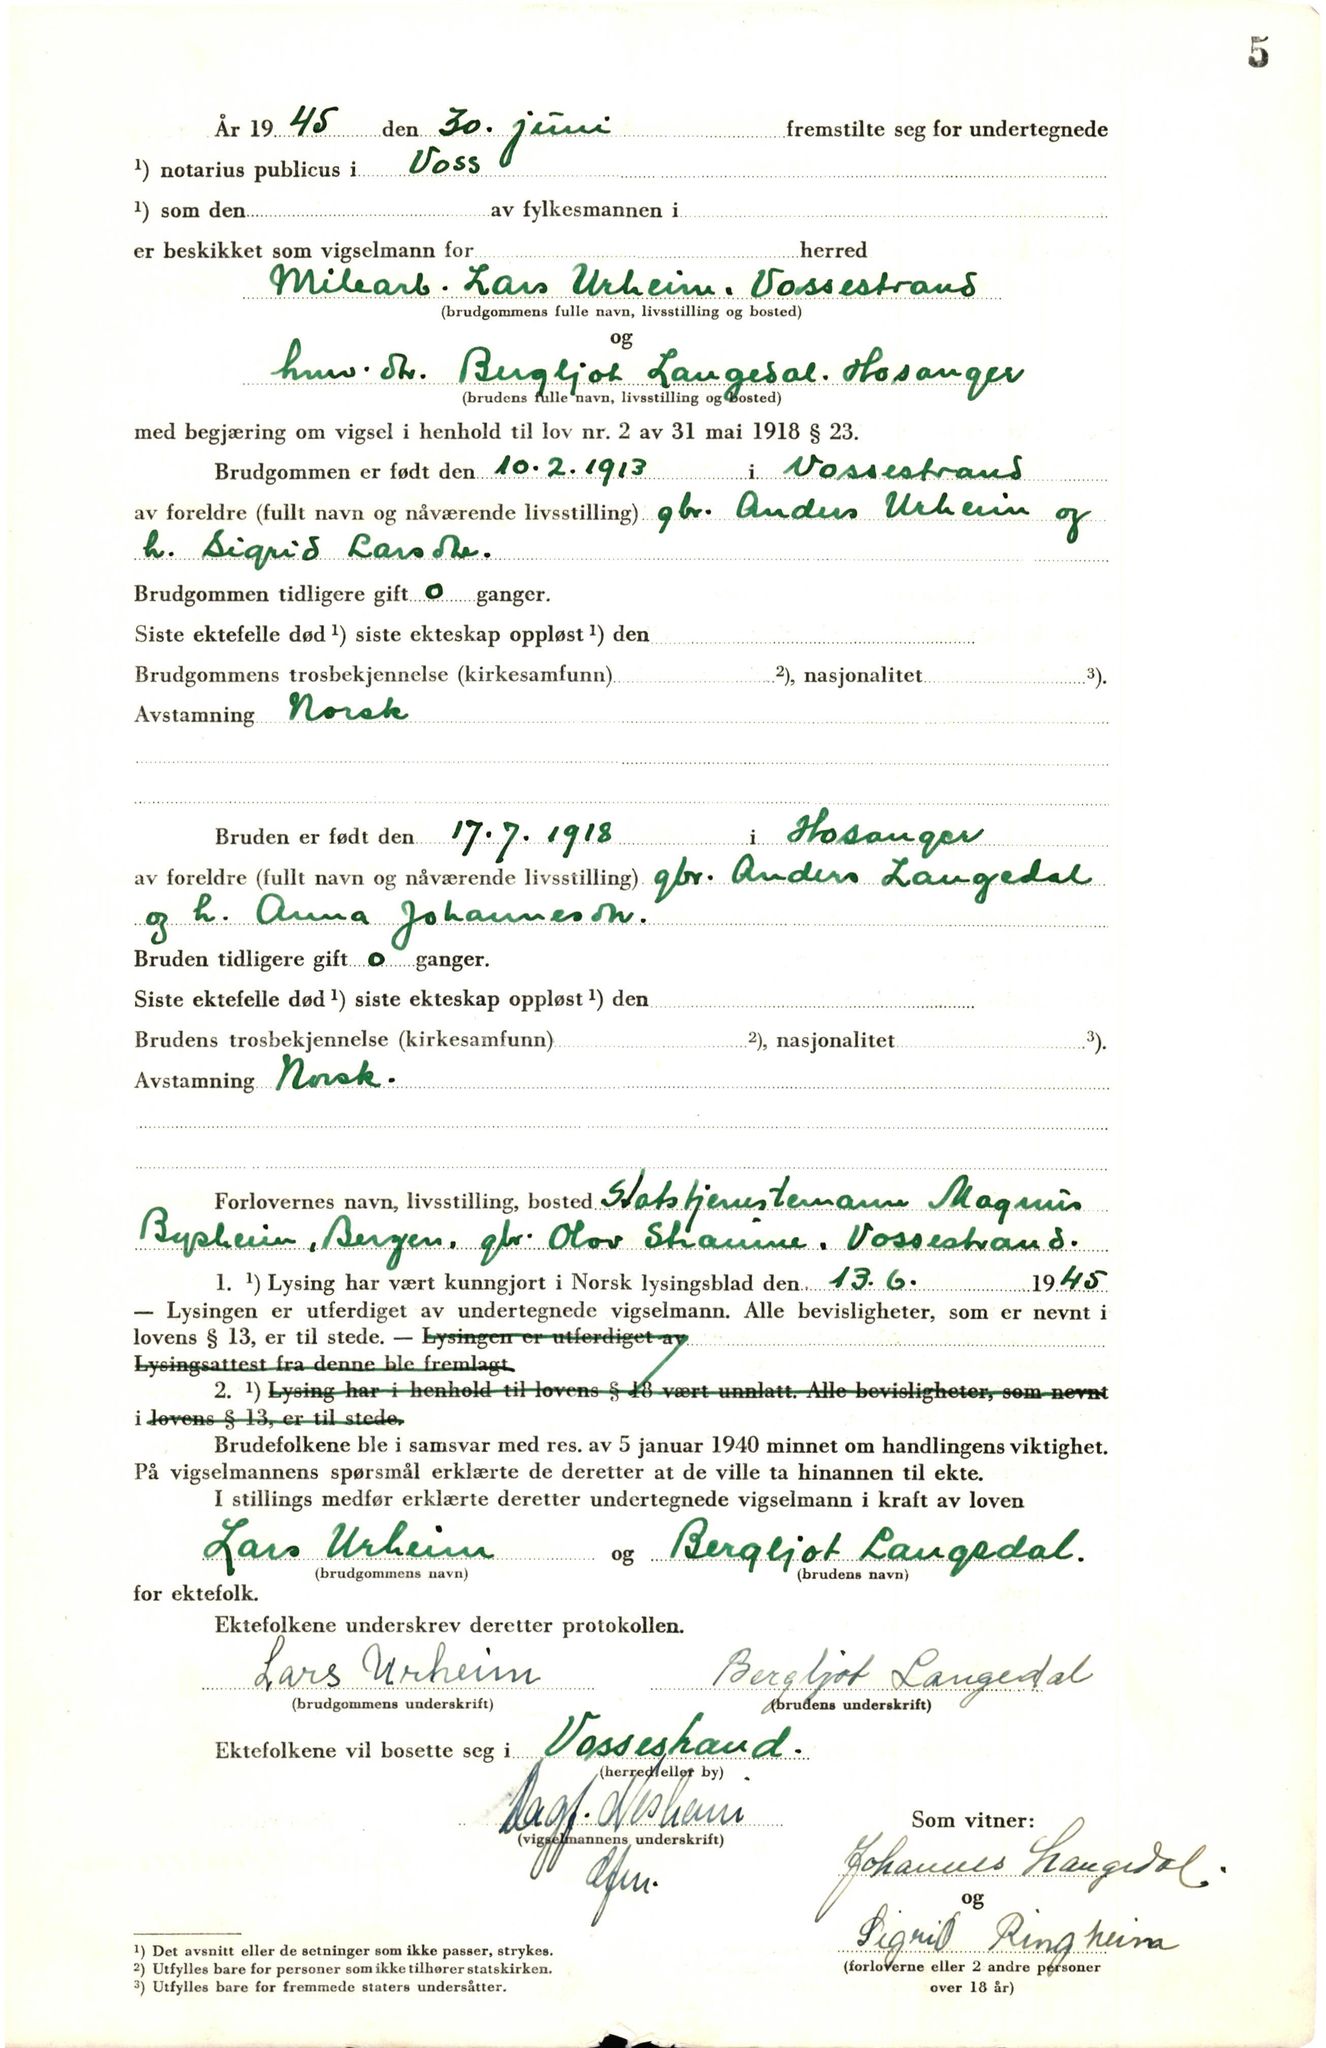 5
År 19 45 den 30. juni fremstilte seg for undertegnede
¹) notarius publicus i Voss
¹) som den av fylkesmannen i
er beskikket som vigselmann for herred
Milearb. Lars Urheim. Vossestrand
(brudgommens fulle navn, livsstilling og bosted)
og
hmv. dtr. Bergljot Langedal. Hosanger
(brudens fulle navn, livsstilling og bosted)
med begjæring om vigsel i henhold til lov nr. 2 av 31 mai 1918 § 23.
Brudgommen er født den 10.2.1913 i Vossestrand
av foreldre (fullt navn og nåværende livsstilling) gbr. Anders Urheim og
h. Sigrid Larsdtr.
Brudgommen tidligere gift 0 ganger.
Siste ektefelle død ¹) siste ekteskap oppløst ¹) den
Brudgommens trosbekjennelse (kirkesamfunn) ²), nasjonalitet ³).
Avstamning Norsk
Bruden er født den 17.7.1918 i Hosanger
av foreldre (fullt navn og nåværende livsstilling) gbr. Anders Langedal
og h. Anna Johannesdtr.
Bruden tidligere gift 0 ganger.
Siste ektefelle død ¹) siste ekteskap oppløst ¹) den
Brudens trosbekjennelse (kirkesamfunn) ²), nasjonalitet ³).
Avstamning Norsk.
Forlovernes navn, livsstilling, bosted Statstjenestemann Magnus
Bysheim, Bergen. gbr. Olov Straume. Vossestrand.
1. ¹) Lysing har vært kunngjort i Norsk lysingsblad den 13.6. 1945
— Lysingen er utferdiget av undertegnede vigselmann. Alle bevisligheter, som er nevnt i
lovens § 13, er til stede. — Lysingen er utferdiget av
Lysingsattest fra denne ble fremlagt.
2. ¹) Lysing har i henhold til lovens § 18 vært unnlatt. Alle bevisligheter, som nevnt
i lovens § 13, er til stede.
Brudefolkene ble i samsvar med res. av 5 januar 1940 minnet om handlingens viktighet.
På vigselmannens spørsmål erklærte de deretter at de ville ta hinannen til ekte.
I stillings medfør erklærte deretter undertegnede vigselmann i kraft av loven
Lars Urheim og Bergljot Langedal.
(brudgommens navn) (brudens navn)
for ektefolk.
Ektefolkene underskrev deretter protokollen.
Lars Urheim Bergljot Langedal
(brudgommens underskrift) (brudens underskrift)
Ektefolkene vil bosette seg i Vossestrand.
(herred eller by)
Dagf. Nesheim
(vigselmannens underskrift)
Som vitner:
Johannes Langedal.
og
Sigrid Ringheim
(forloverne eller 2 andre personer
over 18 år)
¹) Det avsnitt eller de setninger som ikke passer, strykes.
²) Utfylles bare for personer som ikke tilhører statskirken.
³) Utfylles bare for fremmede staters undersåtter.